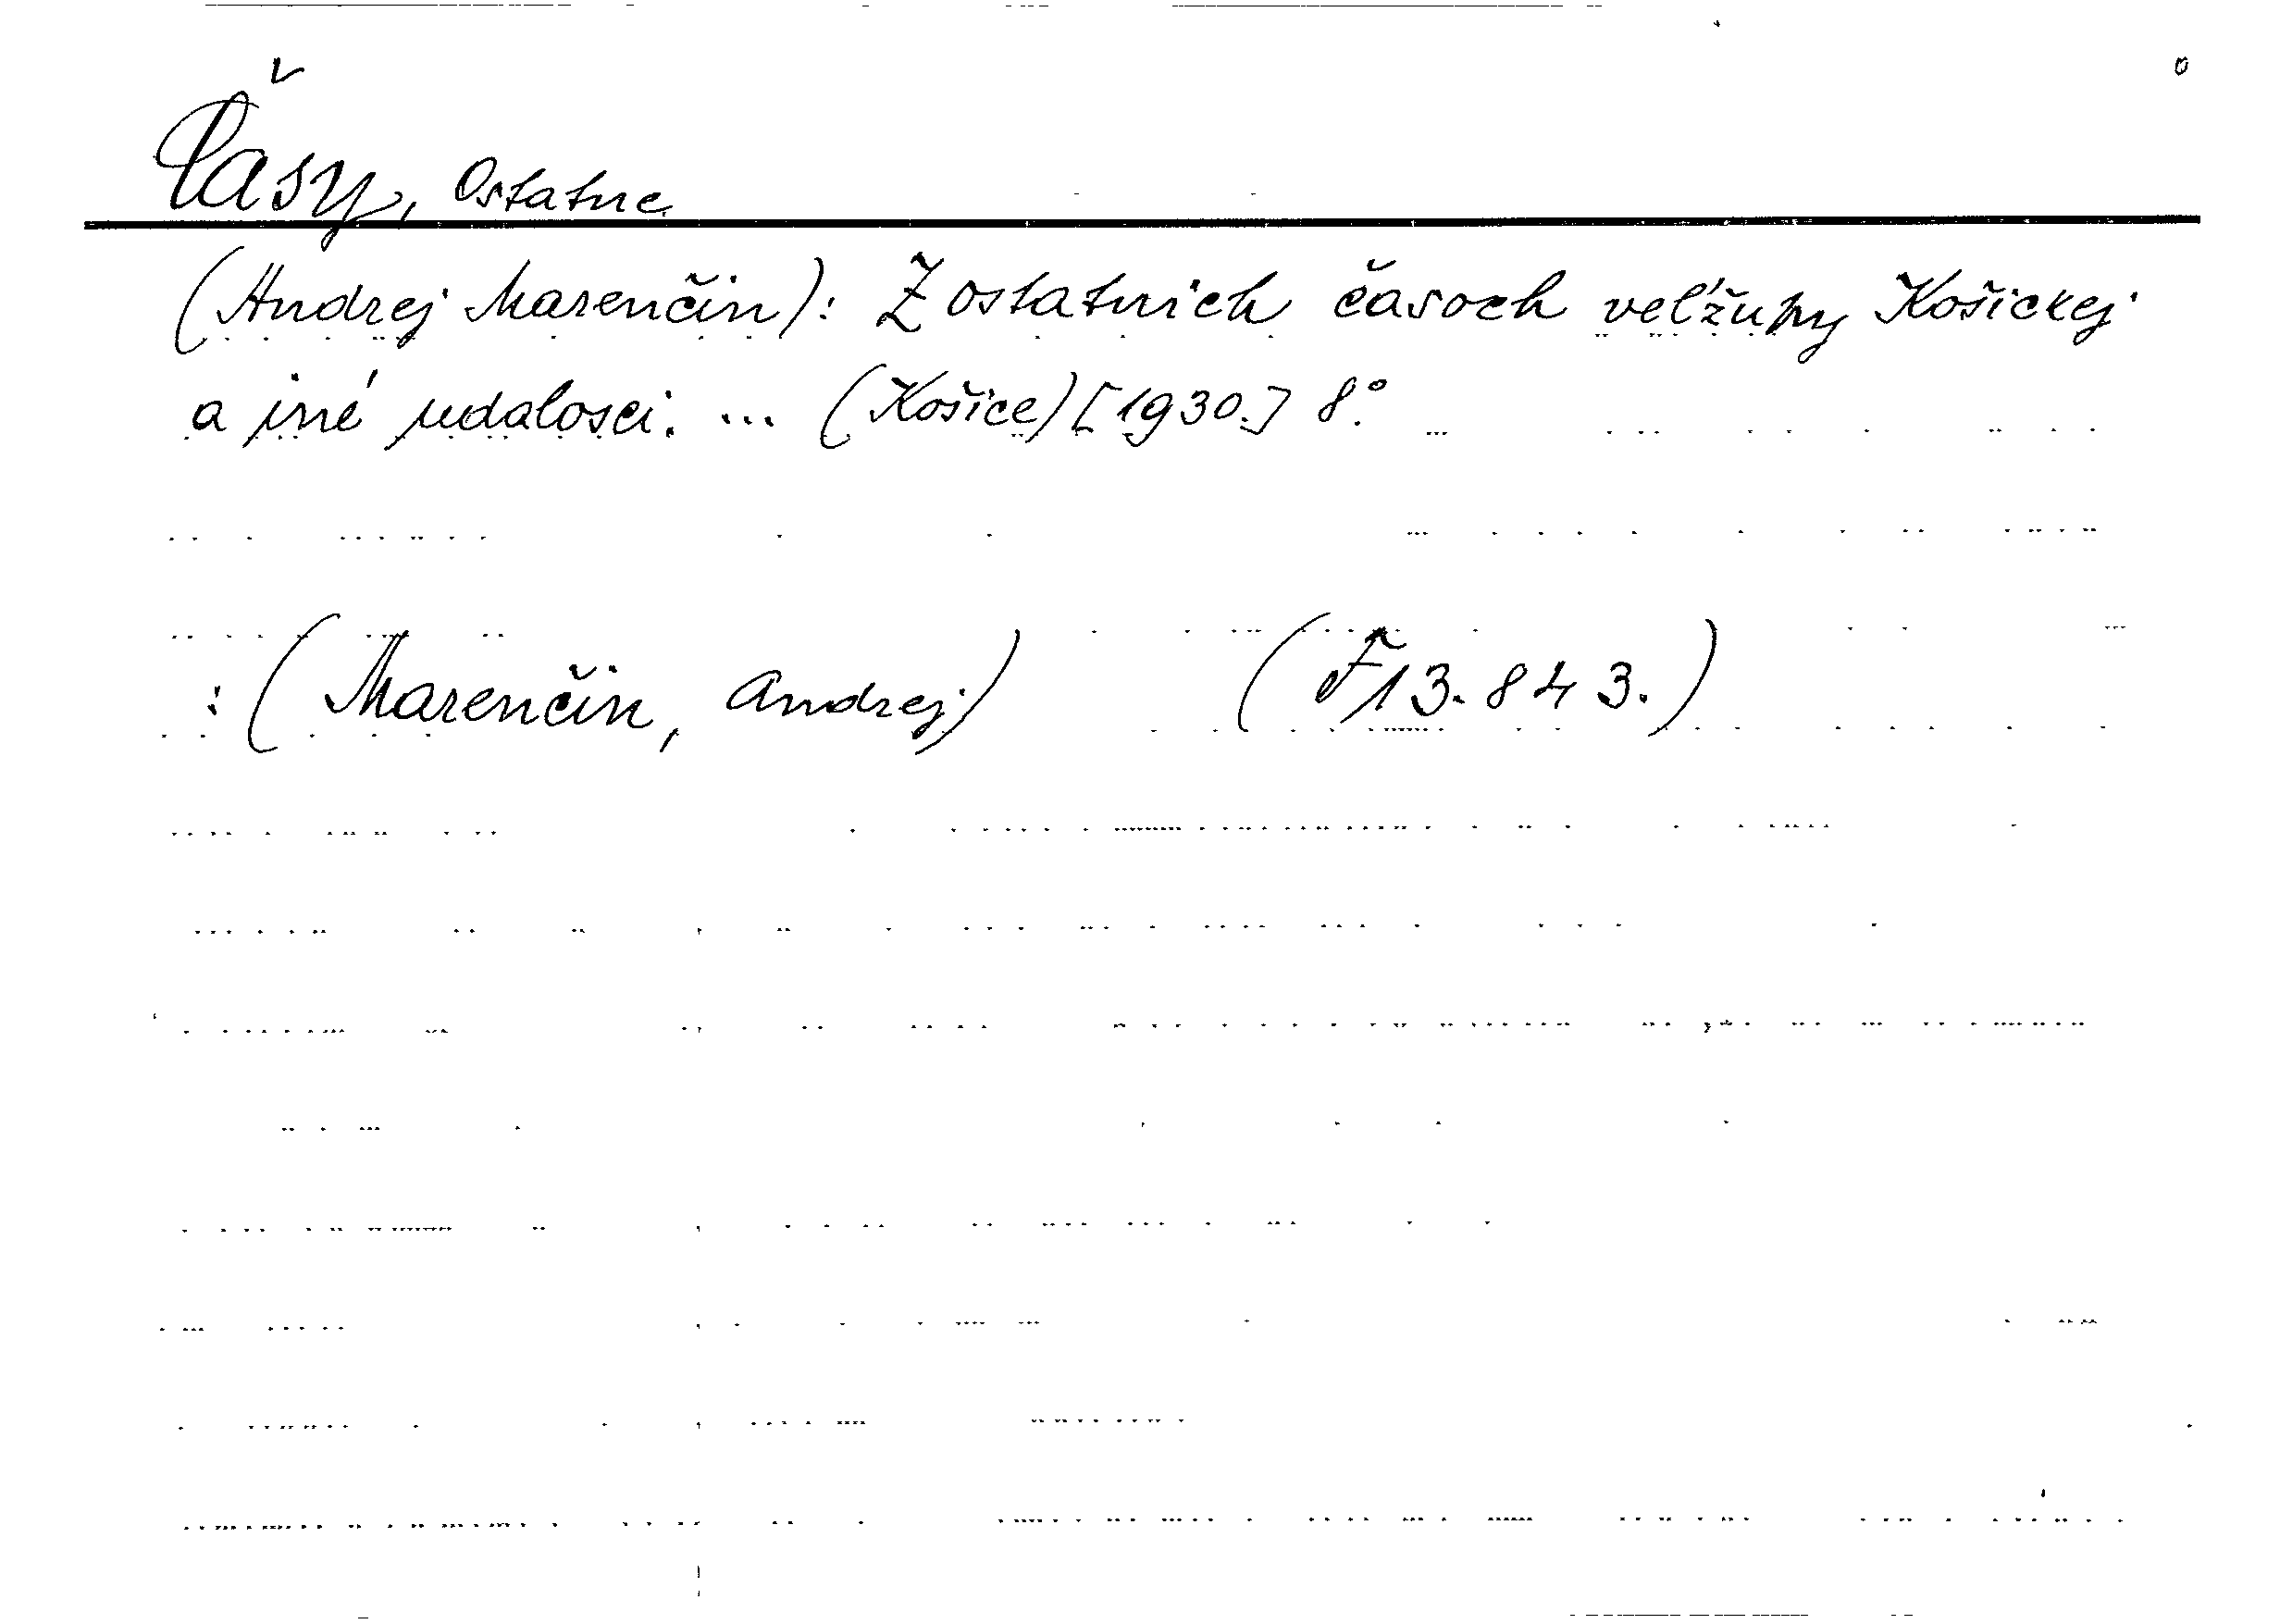 Časy, Ostatne
(Andrej Marenčin): Z ostatnich časoch veľžupy Košickej
a iné udalosci. ... (Košice) [1930.] 8°.
: (Marenčin, Andrej) (F 13.843.)